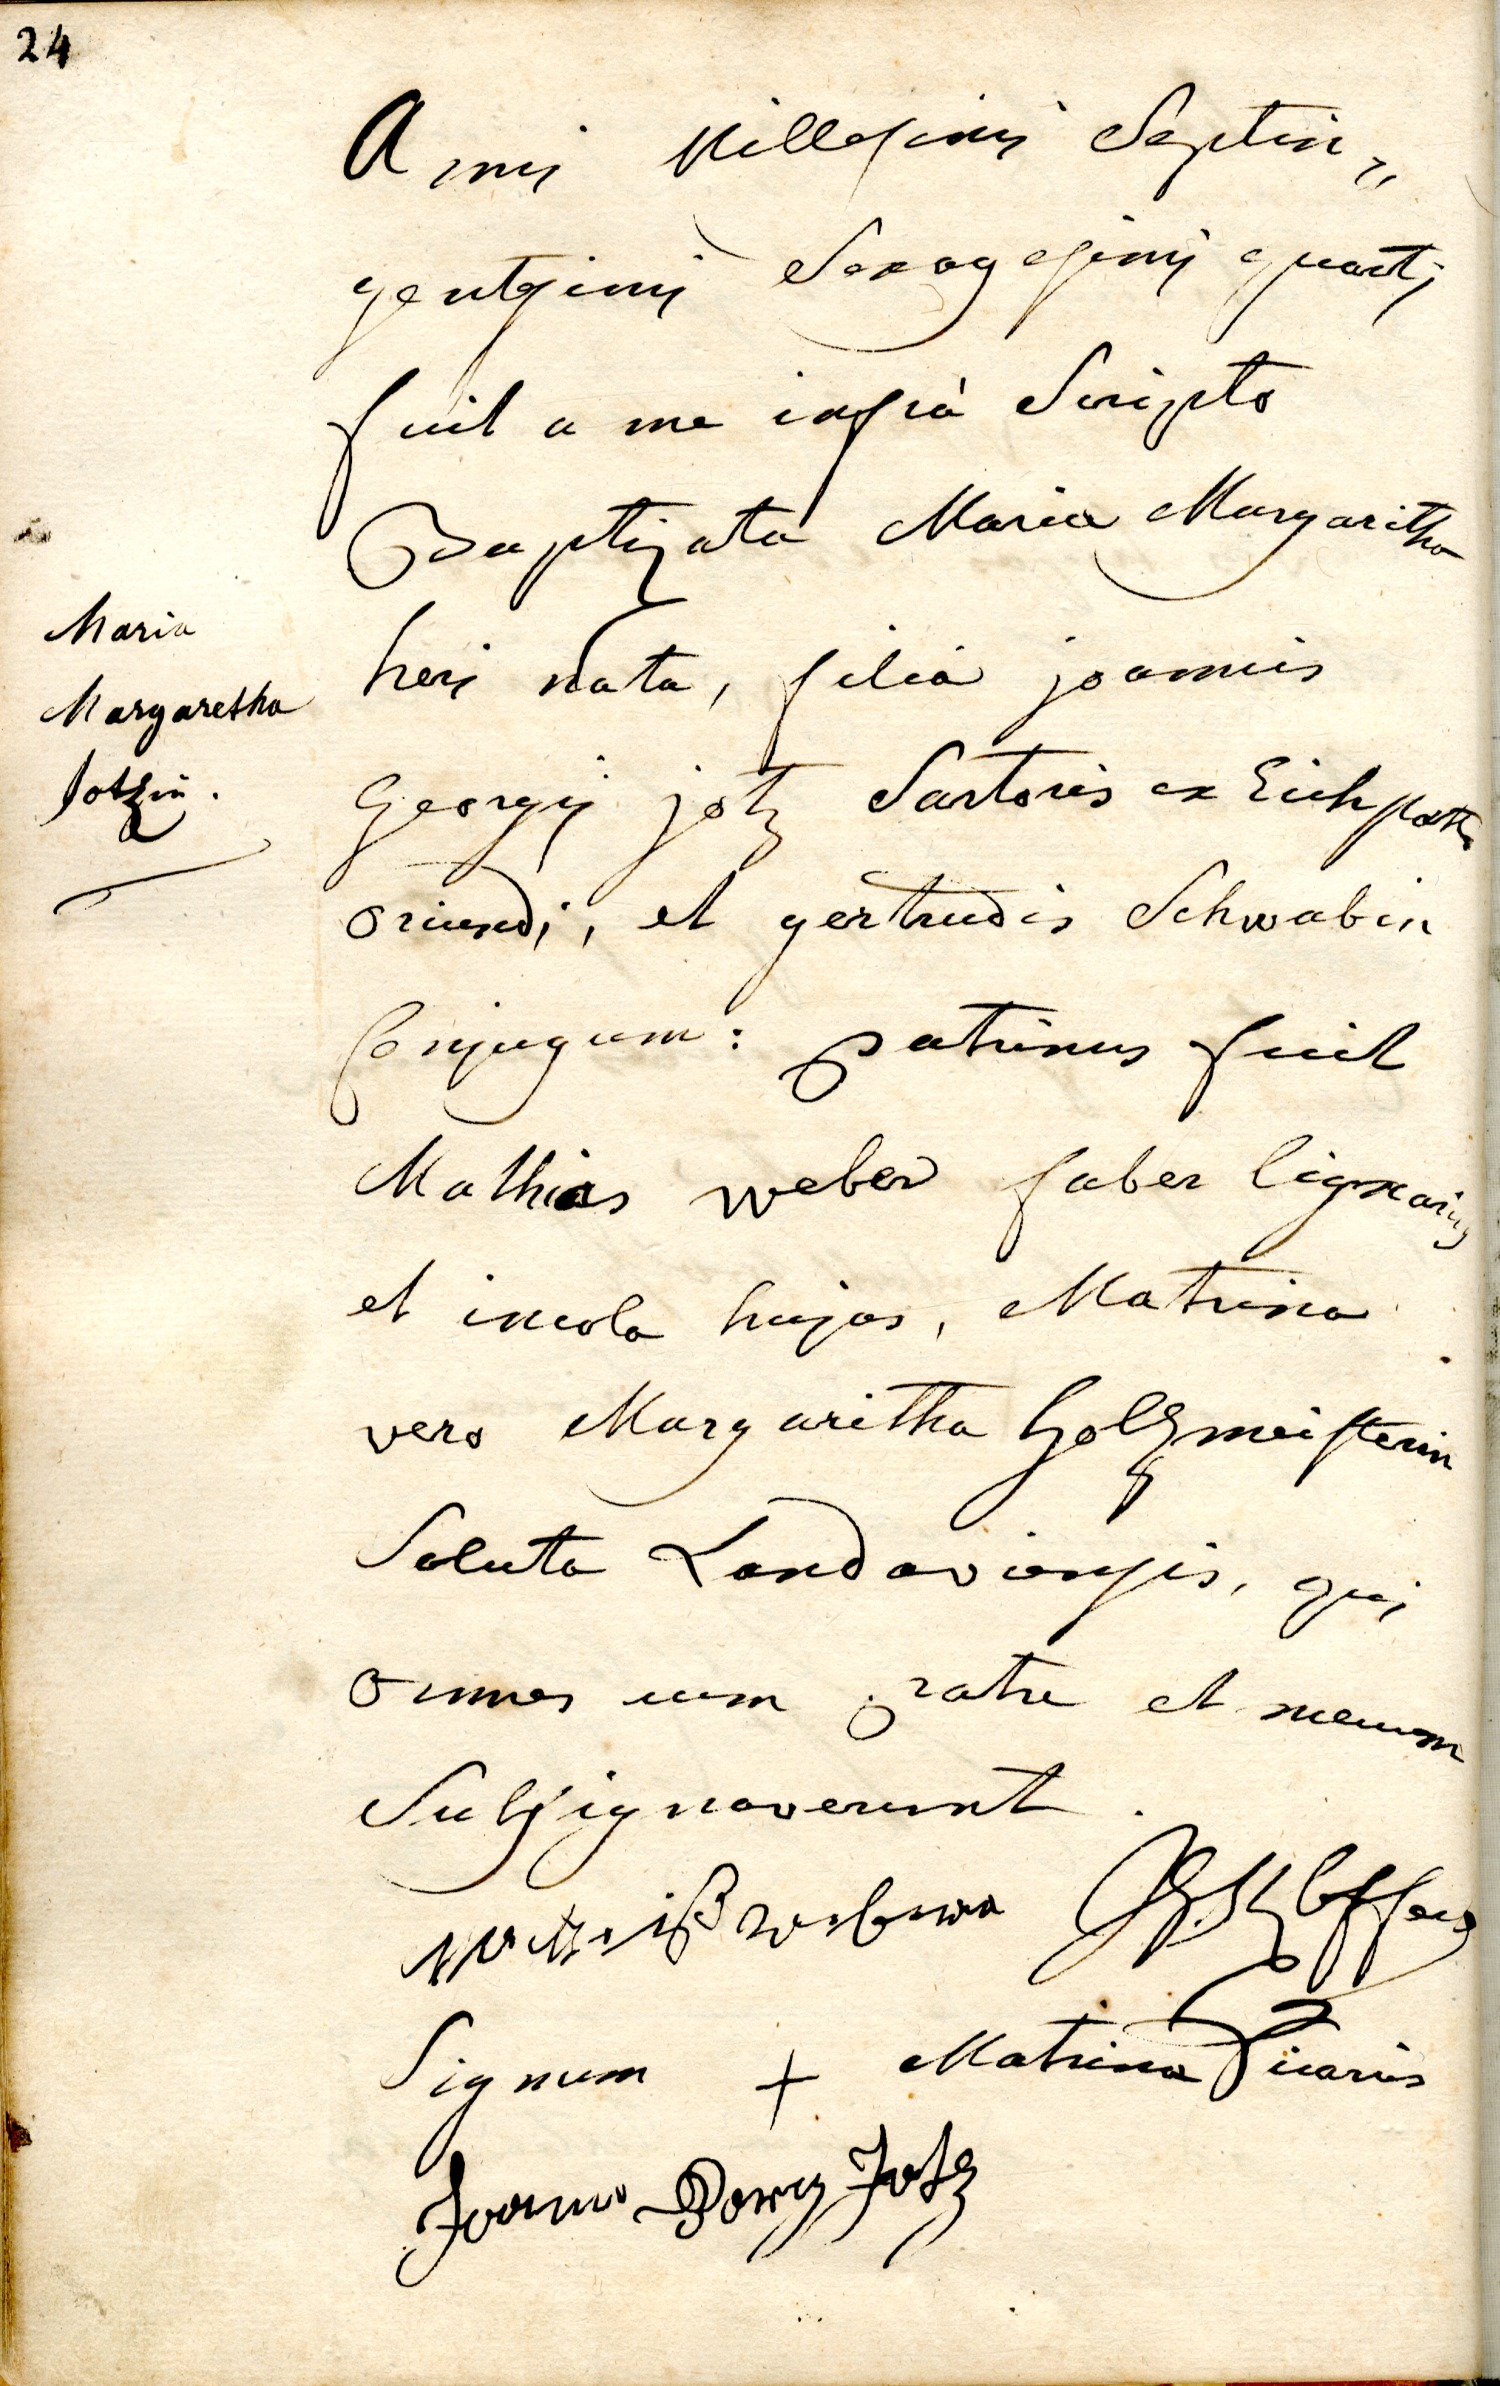 24
Anni Millesimi Septin„
gentesimi Sexagesimi quarti
fuit a me infrà Scripto
Baptizata Maria Margaritha
heri nata, filia joannis
Georgij jotz Sartoris ex Eich
oriundi, et gertrudis Schwabin
Conjugum: patrinus fuit
Mathias weber faber lignarius
et incola hujas, Matrina
vero Margaritha holzmeisterin
Soluta Landaviensis, qui
omnes cum patre et mecum
Subsignaverunt.
Signum + Matrina
Joannes Georg Jotz
Maria
Margaretha
Jotzin.